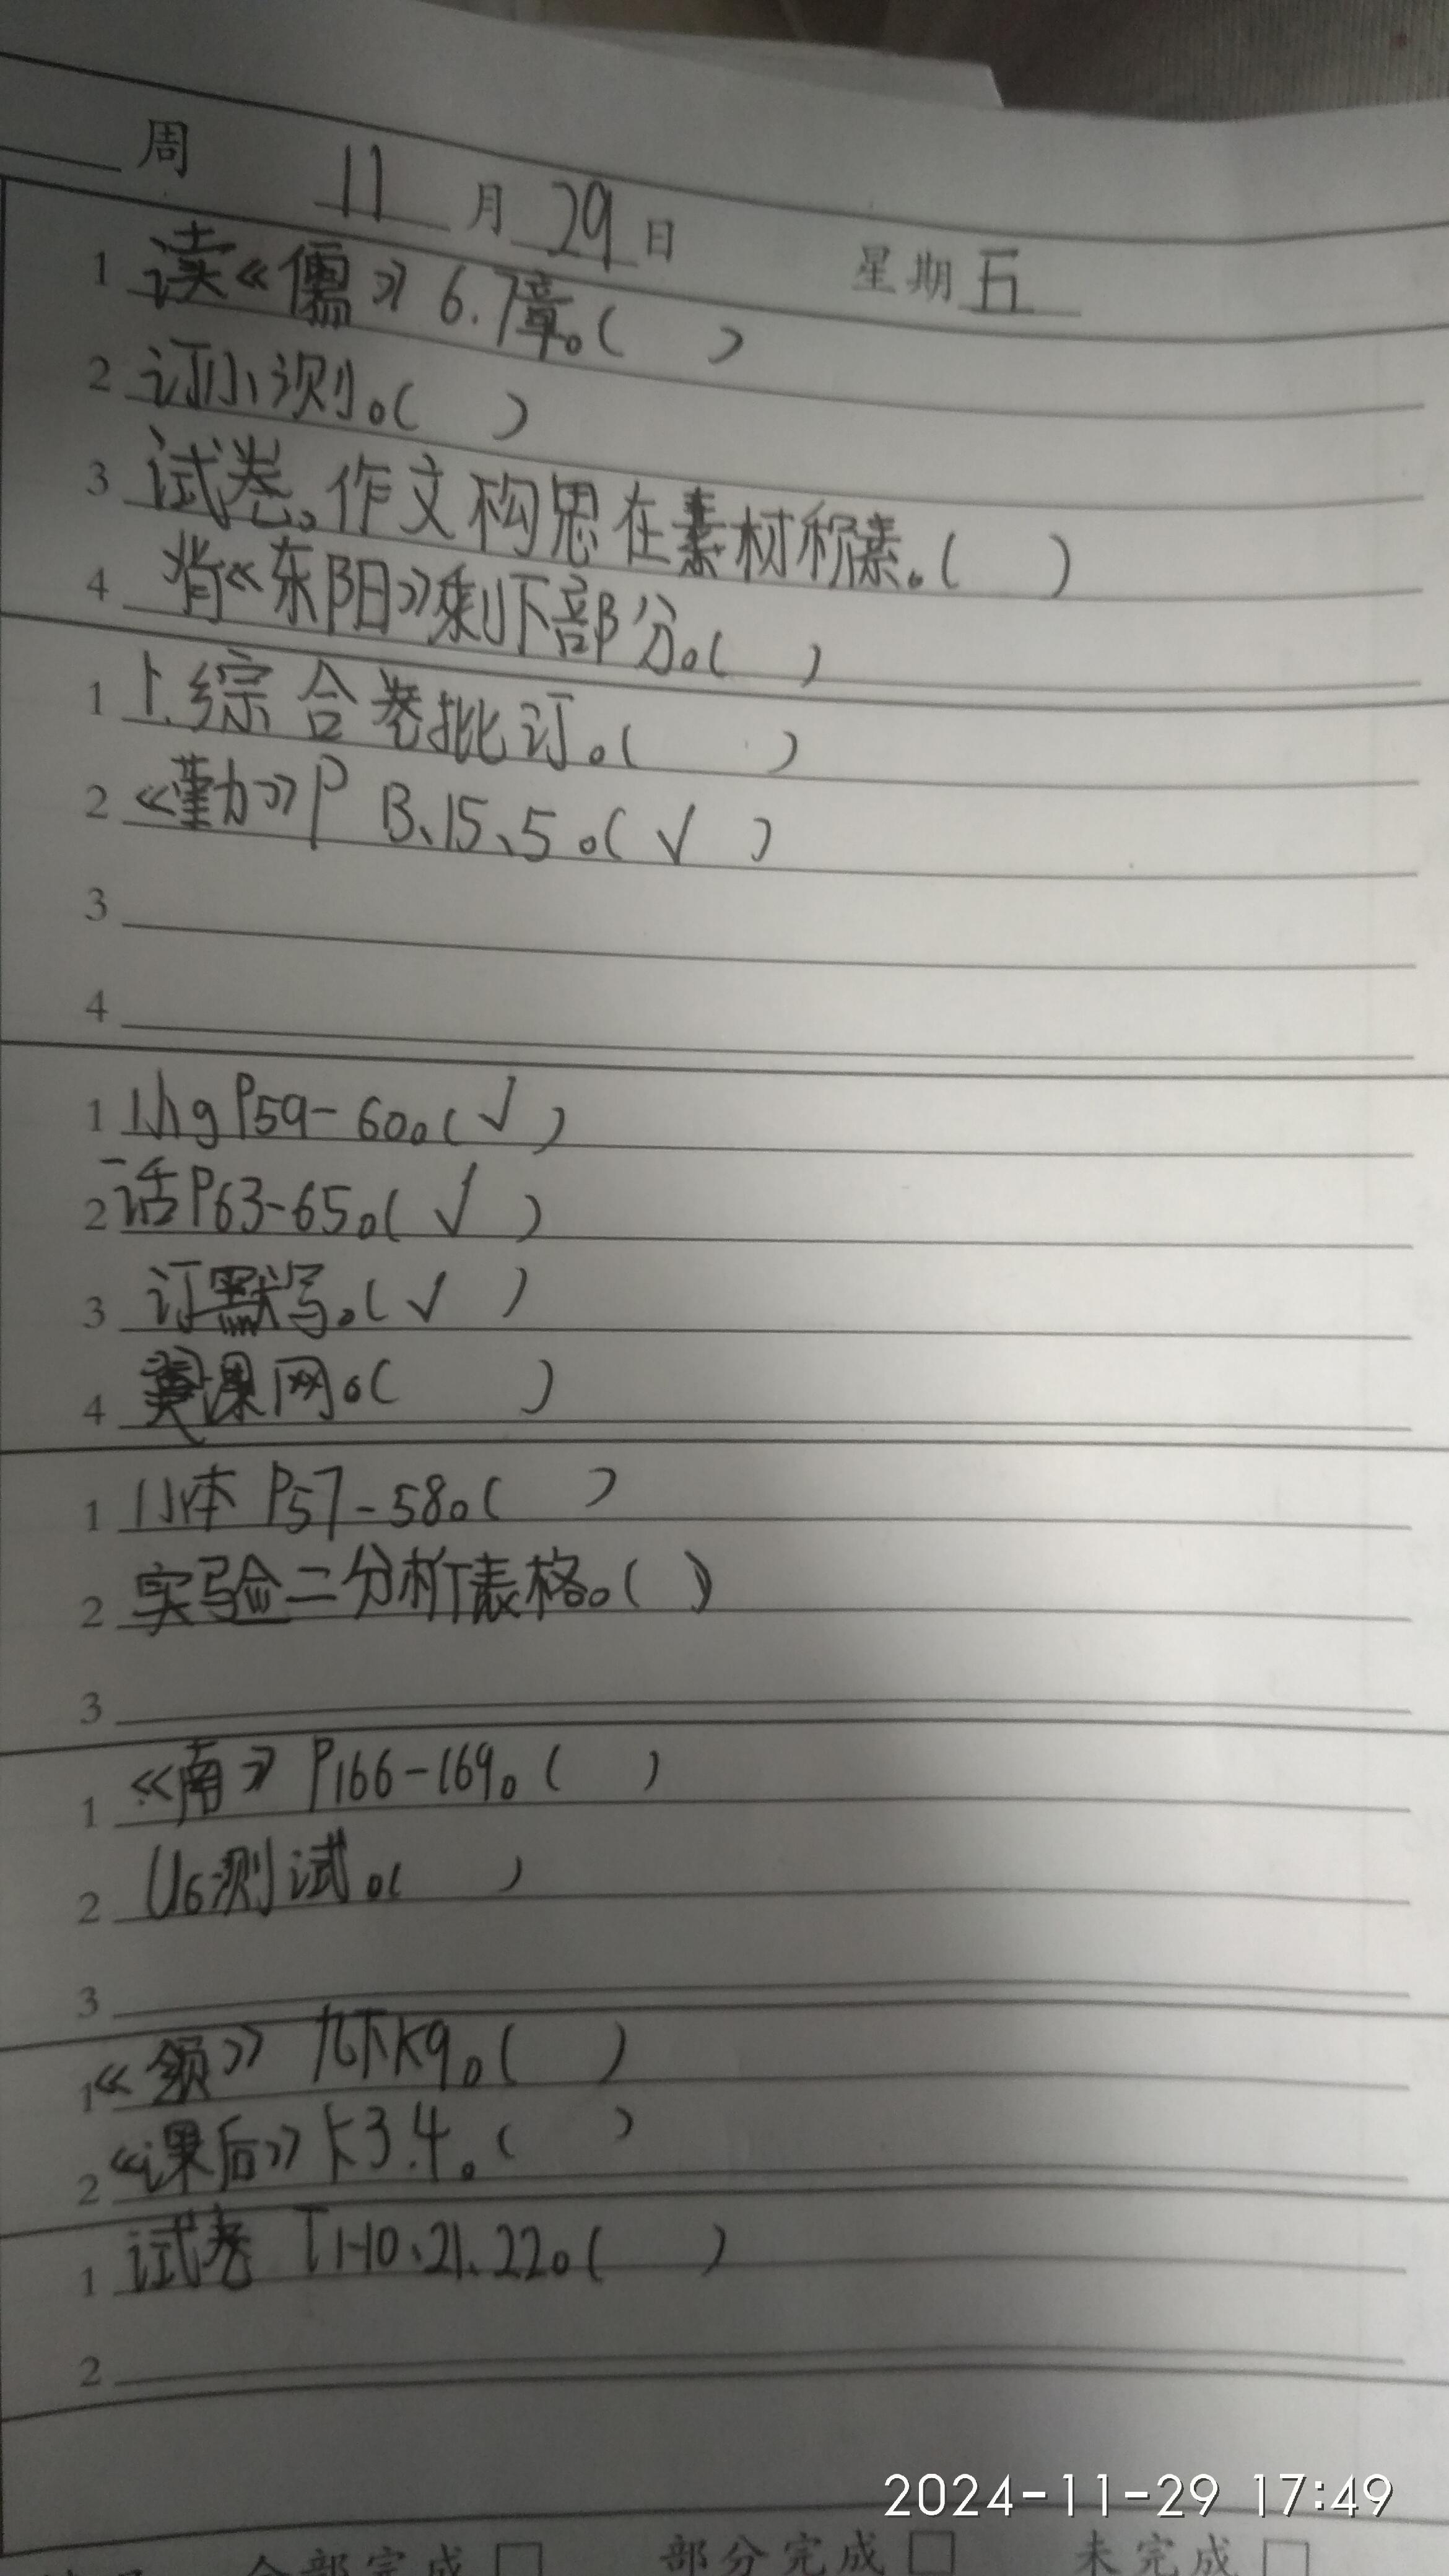 周 11 月 29 日 星期 五
1 读《儒》6.7章。( )
2 订小测。( )
3 试卷。作文构思在素材积素。( )
4 背《东阳》剩下部分。( )
1 卜.综合卷批订。( )
2 《勤》P B、15、5。(√ )
3
4
1 小g P59-60。(√ )
2 一话P63-65。( √ )
3 订默写。(√ )
4 翼课网。( )
1 小本 P57-58。( )
2 实验二分析表格。( )
3
1 《南》 P166-169。( )
2 U6测试。( )
3
1 《领》 九下K9。( )
2 《课后》 卡3.4。( )
1 试卷 T1-10.21.22。( )
2
2024-11-29 17:49
全部完成 □ 部分完成 □ 未完成 □